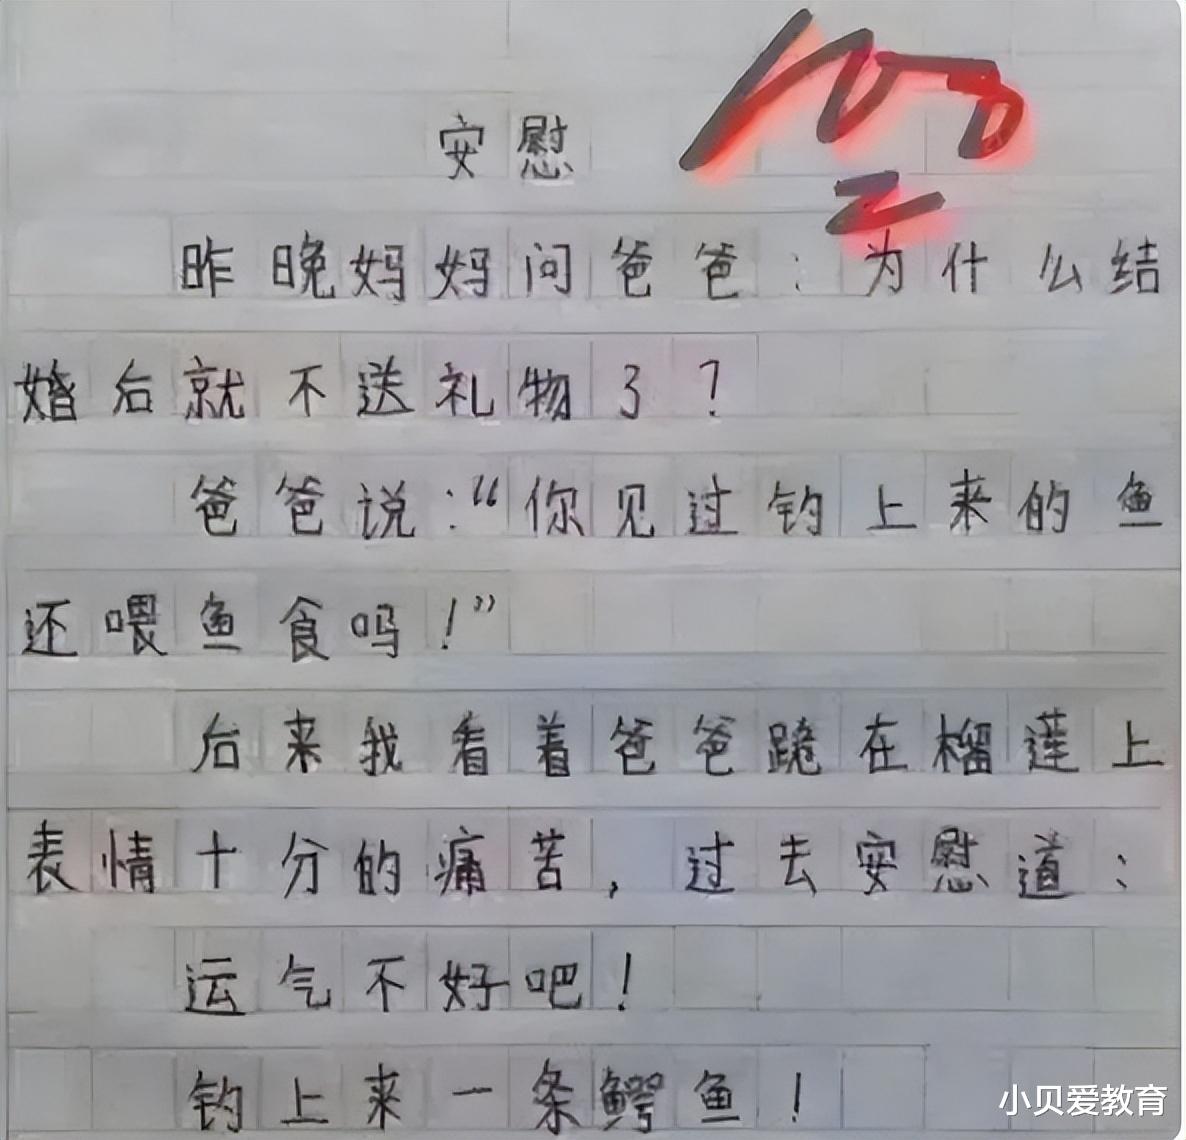 安慰
昨晚妈妈问爸爸：为什么结
婚后就不送礼物了？
爸爸说：“你见过钓上来的鱼
还喂鱼食吗！”
后来我看着爸爸跪在榴莲上
表情十分的痛苦，过去安慰道：
运气不好吧！
钓上来一条鳄鱼！
小贝爱教育